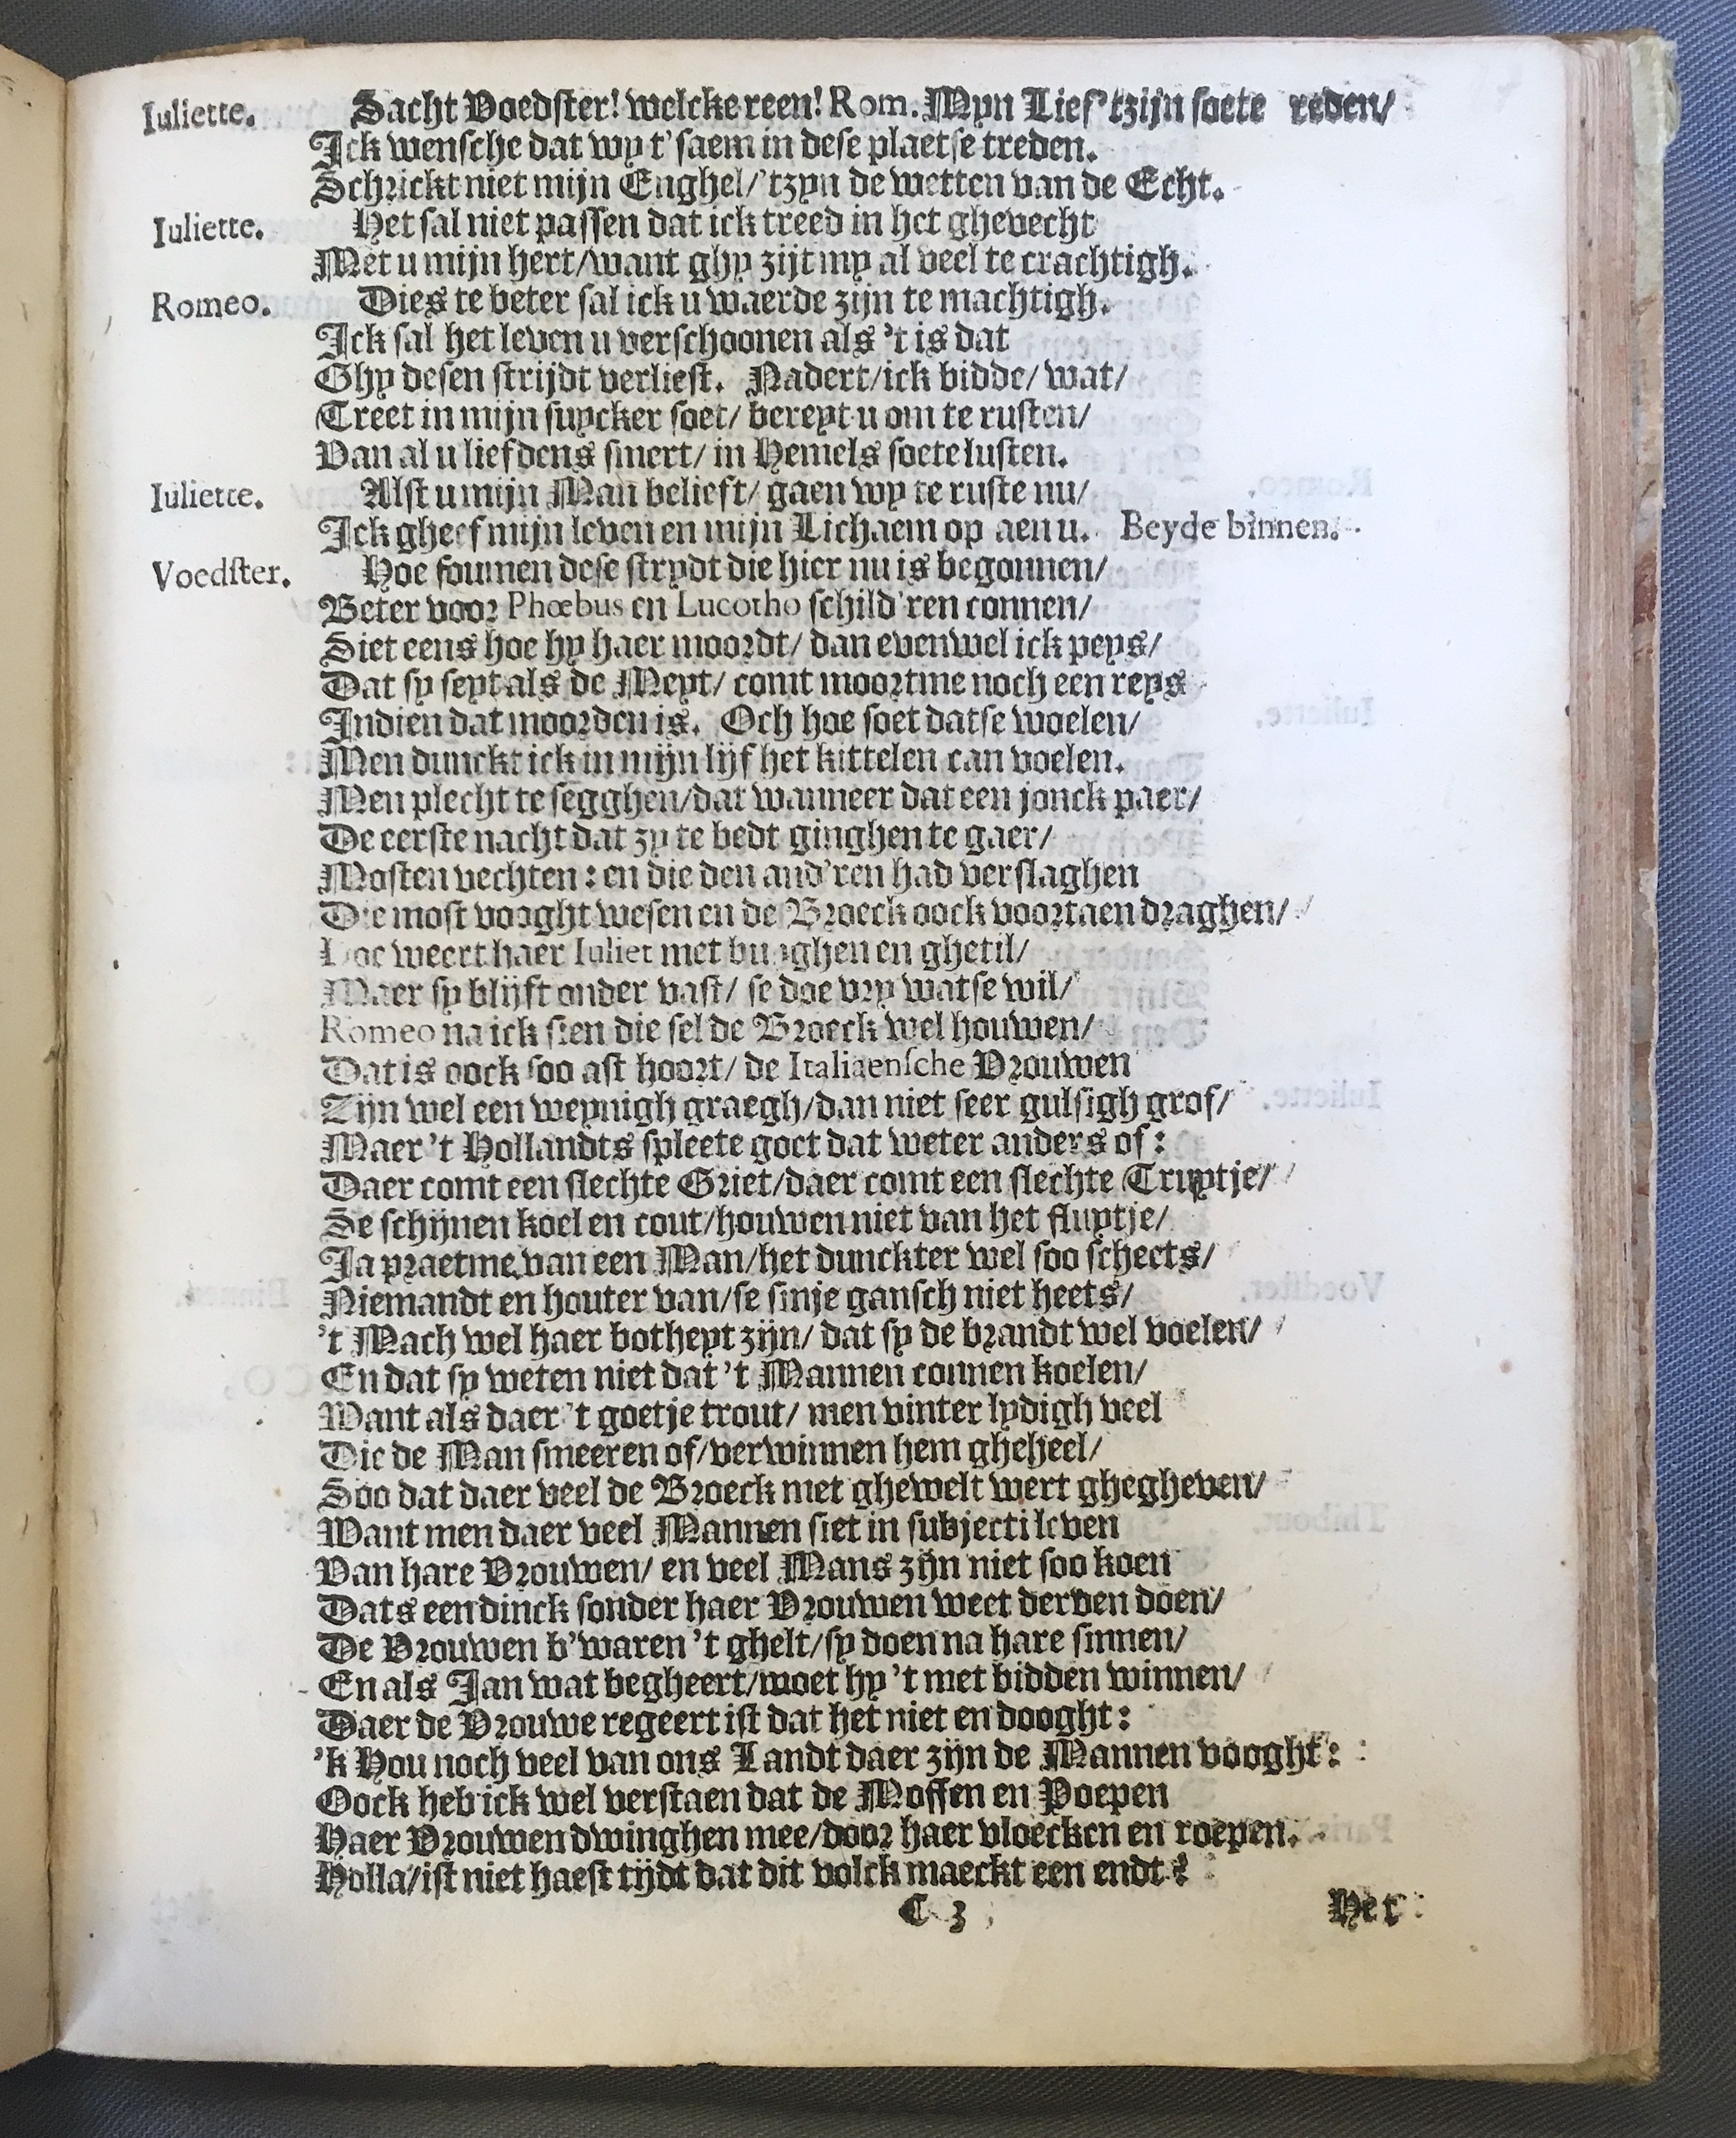 Iuliette. Sacht Voedster! welcke reen! Rom. Myn Lief 'tzijn soete reden/
Ick wensche dat wy t'saem in dese plaetse treden.
Schrickt niet mijn Enghel/'tzyn de wetten van de Echt.
Iuliette. Het sal niet passen dat ick treed in het ghevecht
Met u mijn hert/want ghy zijt my al veel te crachtigh.
Romeo. Dies te beter sal ick u waerde zijn te machtigh.
Ick sal het leven u verschoonen als 't is dat
Ghy desen strijdt verliest. Nadert/ick bidde/wat/
Treet in mijn suycker soet/bereyt u om te rusten/
Van al u liefdens smert/in Hemels soete lusten.
Iuliette. Alst u mijn Man belieft/gaen wy te ruste nu/
Ick gheef mijn leven en mijn Lichaem op aen u. Beyde binnen.
Voedster. Hoe soumen dese strydt die hier nu is begonnen/
Beter voor Phœbus en Lucotho schild'ren connen/
Siet eens hoe hy haer moordt/dan evenwel ick peys/
Dat sy seyt als de Meyt/comt moortme noch een reys
Indien dat moorden is. Och hoe soet datse woelen/
Men dunckt ick in mijn lijf het kittelen can voelen.
Men plecht te segghen/dat wanneer dat een jonck paer/
De eerste nacht dat zy te bedt ginghen te gaer/
Mosten vechten: en die den and'ren had verslaghen
Die most vooght wesen en de Broeck oock voortaen draghen/
Hoe weert haer Iuliet met buyghen en ghetil/
Maer sy blijft onder vast/se doe vry watse wil/
Romeo na ick sien die sel de Broeck wel houwen/
Dat is oock soo ast hoort/de Italiaensche Vrouwen
Zijn wel een weynigh graegh/dan niet seer gulsigh grof/
Maer 't Hollandts spleete goet dat weter anders of:
Daer comt een slechte Griet/daer comt een slechte Truytje/
Se schijnen koel en cout/houwen niet van het fluytje/
Ja praetme van een Man/het dunckter wel soo scheets/
Niemandt en houter van/se sinje gansch niet heets/
't Mach wel haer botheyt zijn/dat sy de brandt wel voelen/
En dat sy weten niet dat 't Mannen connen koelen/
Want als daer 't goetje trout/men vinter lydigh veel
Die de Man smeeren of/verwinnen hem gheheel/
Soo dat daer veel de Broeck met ghewelt wert ghegheven/
Want men daer veel Mannen siet in subjecti leven
Van hare Vrouwen/en veel Mans zijn niet soo koen
Dats een dinck sonder haer Vrouwen weet derven doen/
De Vrouwen b'waren 't ghelt/sy doen na hare sinnen/
En als Jan wat begheert/moet hy 't met bidden winnen/
Daer de Vrouwe regeert ist dat het niet en dooght:
'k Hou noch veel van ons Landt daer zijn de Mannen vooght:
Oock heb ick wel verstaen dat de Moffen en Poepen
Haer Vrouwen dwinghen mee/door haer vloecken en roepen.
Holla/ist niet haest tijdt dat dit volck maeckt een endt?
C 3 Het